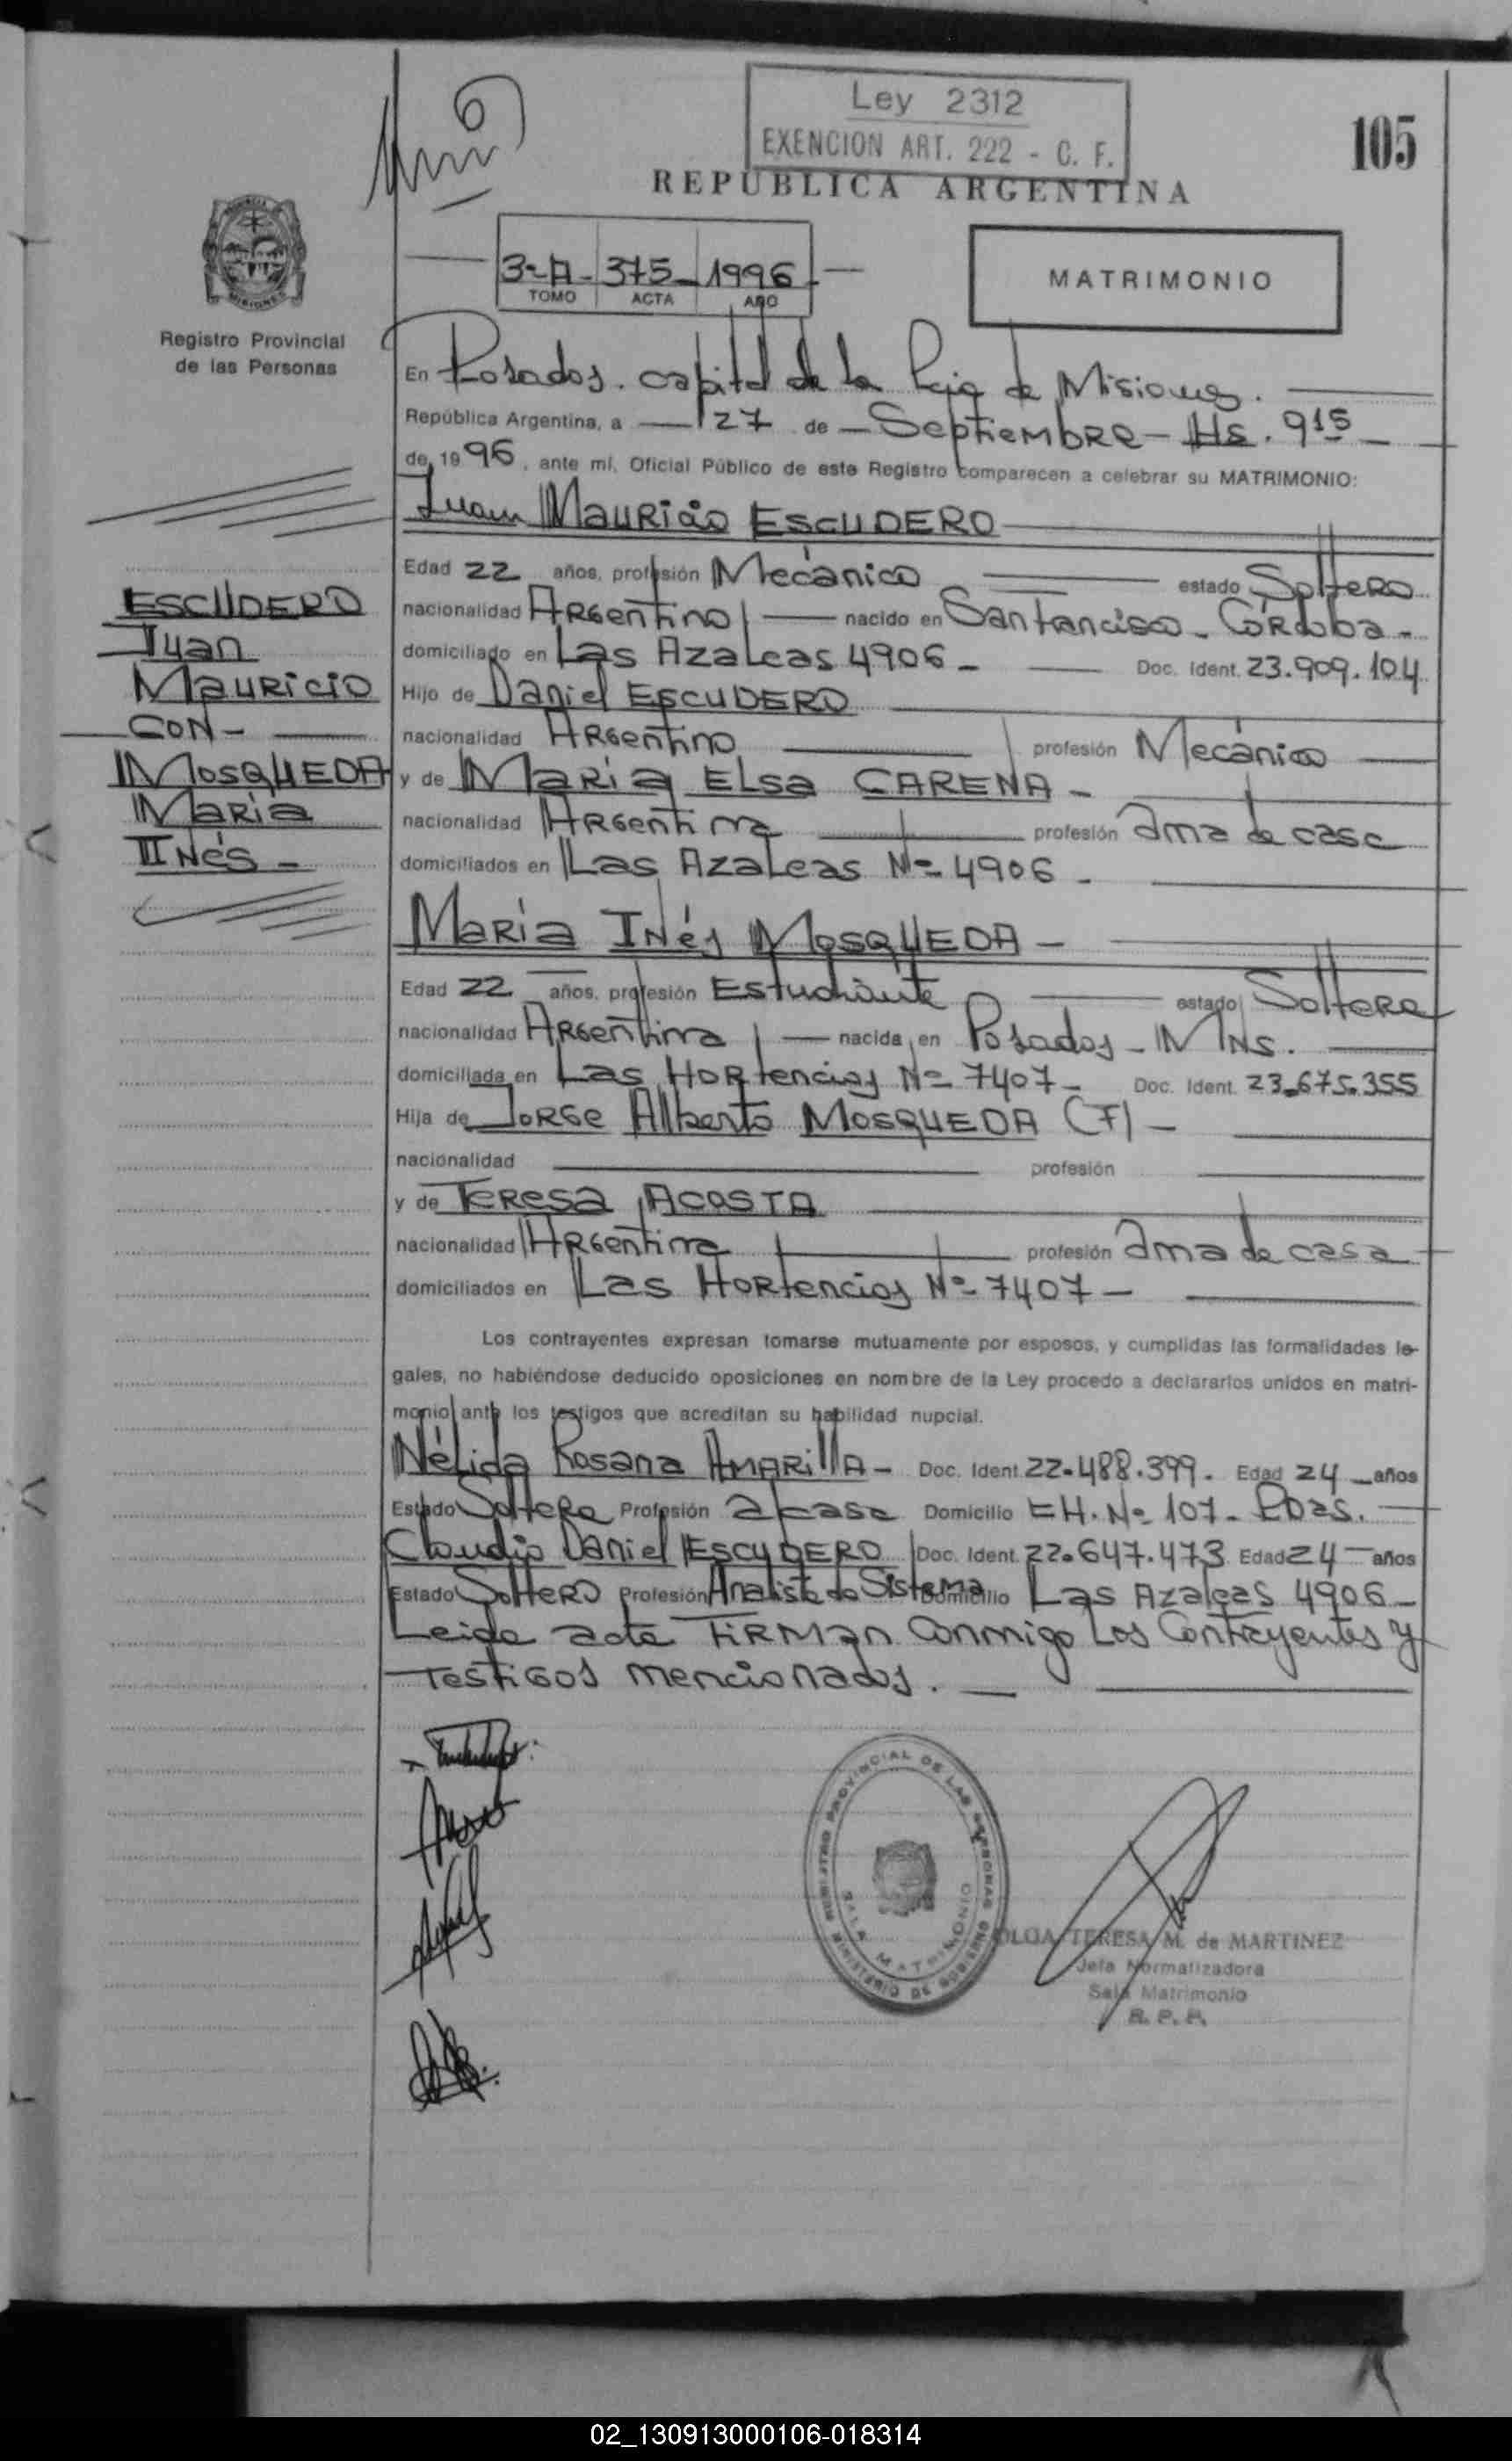 Ley 2312
EXENCION ART. 222 - C. F.
105
REPUBLICA ARGENTINA
3-A- 375- 1996-
TOMO ACTA AÑO
MATRIMONIO
Registro Provincial
de las Personas
En Posadas. capital de la Pcia de Misiones.
República Argentina, a 27 de Septiembre - Hs. 9 15
de 19 96, ante mí, Oficial Público de este Registro comparecen a celebrar su MATRIMONIO:
Juan Mauricio ESCUDERO
Edad 22 años, profesión Mecánico estado Soltero
nacionalidad Argentino nacido en San Francisco - Córdoba -
domiciliado en Las Azaleas 4906 - Doc. Ident. 23.909.104
Hijo de Daniel ESCUDERO
nacionalidad Argentino profesión Mecánico
y de María Elsa CARENA -
nacionalidad Argentina profesión ama de casa
domiciliados en Las Azaleas Nº 4906 -
ESCUDERO
Juan
Mauricio
CON -
MOSQUEDA
María
Inés -
María Inés MOSQUEDA -
Edad 22 años, profesión Estudiante estado Soltera
nacionalidad Argentina nacida en Posadas - Mns.
domiciliada en Las Hortencias Nº 7407 - Doc. Ident. 23.675.355
Hija de Jorge Alberto MOSQUEDA (F) -
nacionalidad profesión
y de Teresa ACOSTA
nacionalidad Argentina profesión ama de casa
domiciliados en Las Hortencias Nº 7407 -
Los contrayentes expresan tomarse mutuamente por esposos, y cumplidas las formalidades le-
gales, no habiéndose deducido oposiciones en nombre de la Ley procedo a declararlos unidos en matri-
monio ante los testigos que acreditan su habilidad nupcial.
Nélida Rosana AMARILLA - Doc. Ident. 22.488.399. Edad 24 años
Estado Soltera Profesión a/casa Domicilio CH. Nº 107 - Pdas.
Claudio Daniel ESCUDERO Doc. Ident. 22.647.473 Edad 24 años
Estado Soltero Profesión Analista de Sistema Domicilio Las Azaleas 4906 -
Leida acta firman conmigo los contrayentes y
testigos mencionados.
REGISTRO PROVINCIAL DE LAS PERSONAS
MINISTERIO DE GOBIERNO
SALA MATRIMONIO
OLGA TERESA M. de MARTINEZ
Jefa Normalizadora
Sala Matrimonio
R. P. P.
02_130913000106-018314